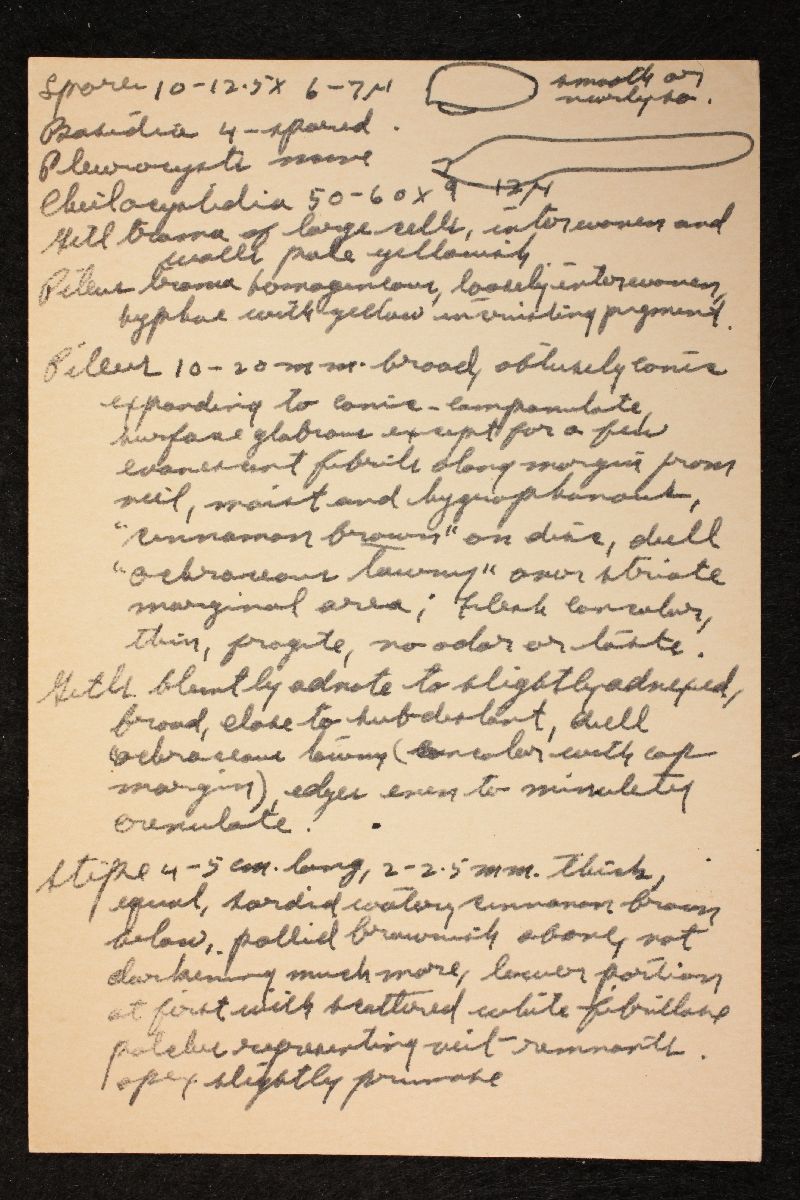 Spores 10-12.5 x 6-7µ smooth or
nearly so.
Basidia 4-spored.
Pleurocysts none
Cheilocystidia 50-60 x 9 12µ
Gill trama of large cells, interwoven and
walls pale yellowish
Pileus trama homogeneous, loosely interwoven,
hyphae with yellow incrusting pigment.
Pileus 10-20 mm. broad, obtusely conic
expanding to conic-campanulate,
surface glabrous except for a few
evanescent fibrils along margin from
veil, moist and hygrophanous,
"cinnamon brown" on disc, dull
"ochraceous tawny" over striate
marginal area; flesh concolor,
thin, fragile, no odor or taste.
Gills bluntly adnate to slightly adnexed,
broad, close to subdistant, dull
ochraceous tawny (concolor with cap
margin), edges even to minutely
crenulate.
Stipe 4-5 cm. long, 2-2.5 mm. thick,
equal, sordid watery cinnamon brown
below, pallid brownish above, not
darkening much more, lower portion
at first with scattered white fibrillose
patches representing veil remnants.
apex slightly pruinose